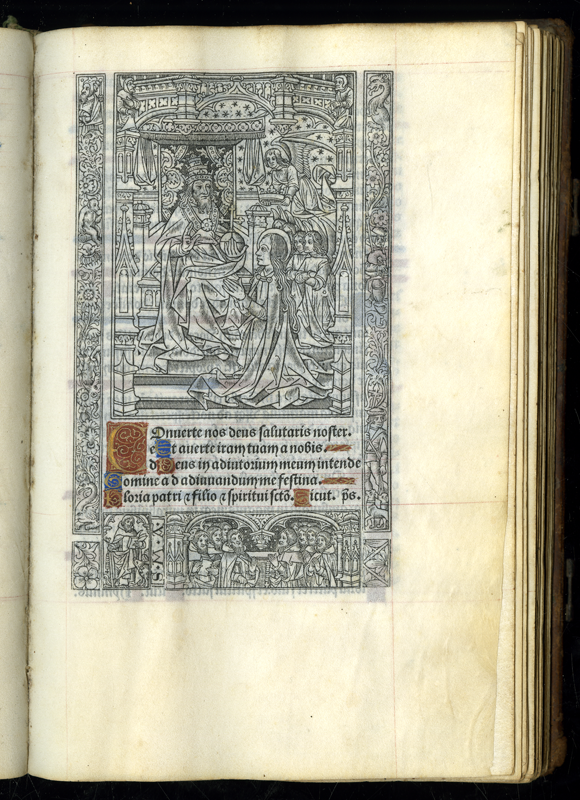 COnuerte nos deus salutaris noster.
e Et auerte iram tuam a nobis.
d Deus in adiutorium meum intende
Domine ad adiuuandum me festina.
Gloria patri ⁊ filio ⁊ spiritui sctō. Sicut. ps̄.